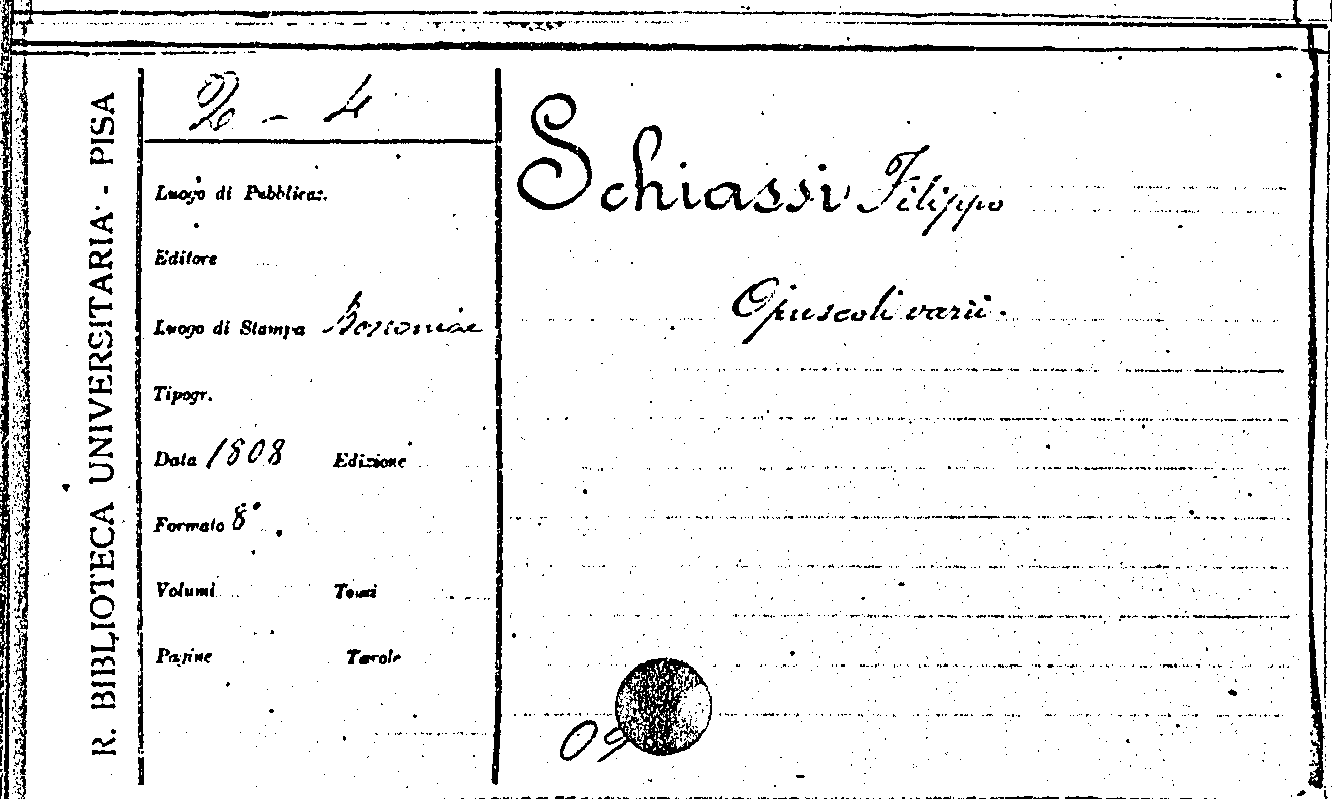 R. BIBLIOTECA UNIVERSITARIA - PISA
- 4
Luogo di Pubblicaz.
Editore
Luogo di Stampa Bononiae
Tipogr.
Data 1808 Edizione
Formato 8°.
Volumi Tomi
Pagine Tavole
Schiassi Filippo
Opuscoli varii.